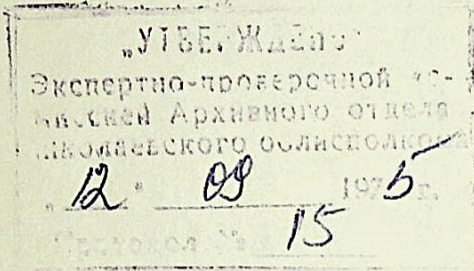 „УТВЕРЖДЕНО"
Экспертно-проверочной ко-
миссией Архивного отдела
Николаевского облисполкома
„ 12 " 09 1975 г.
Протокол № 15